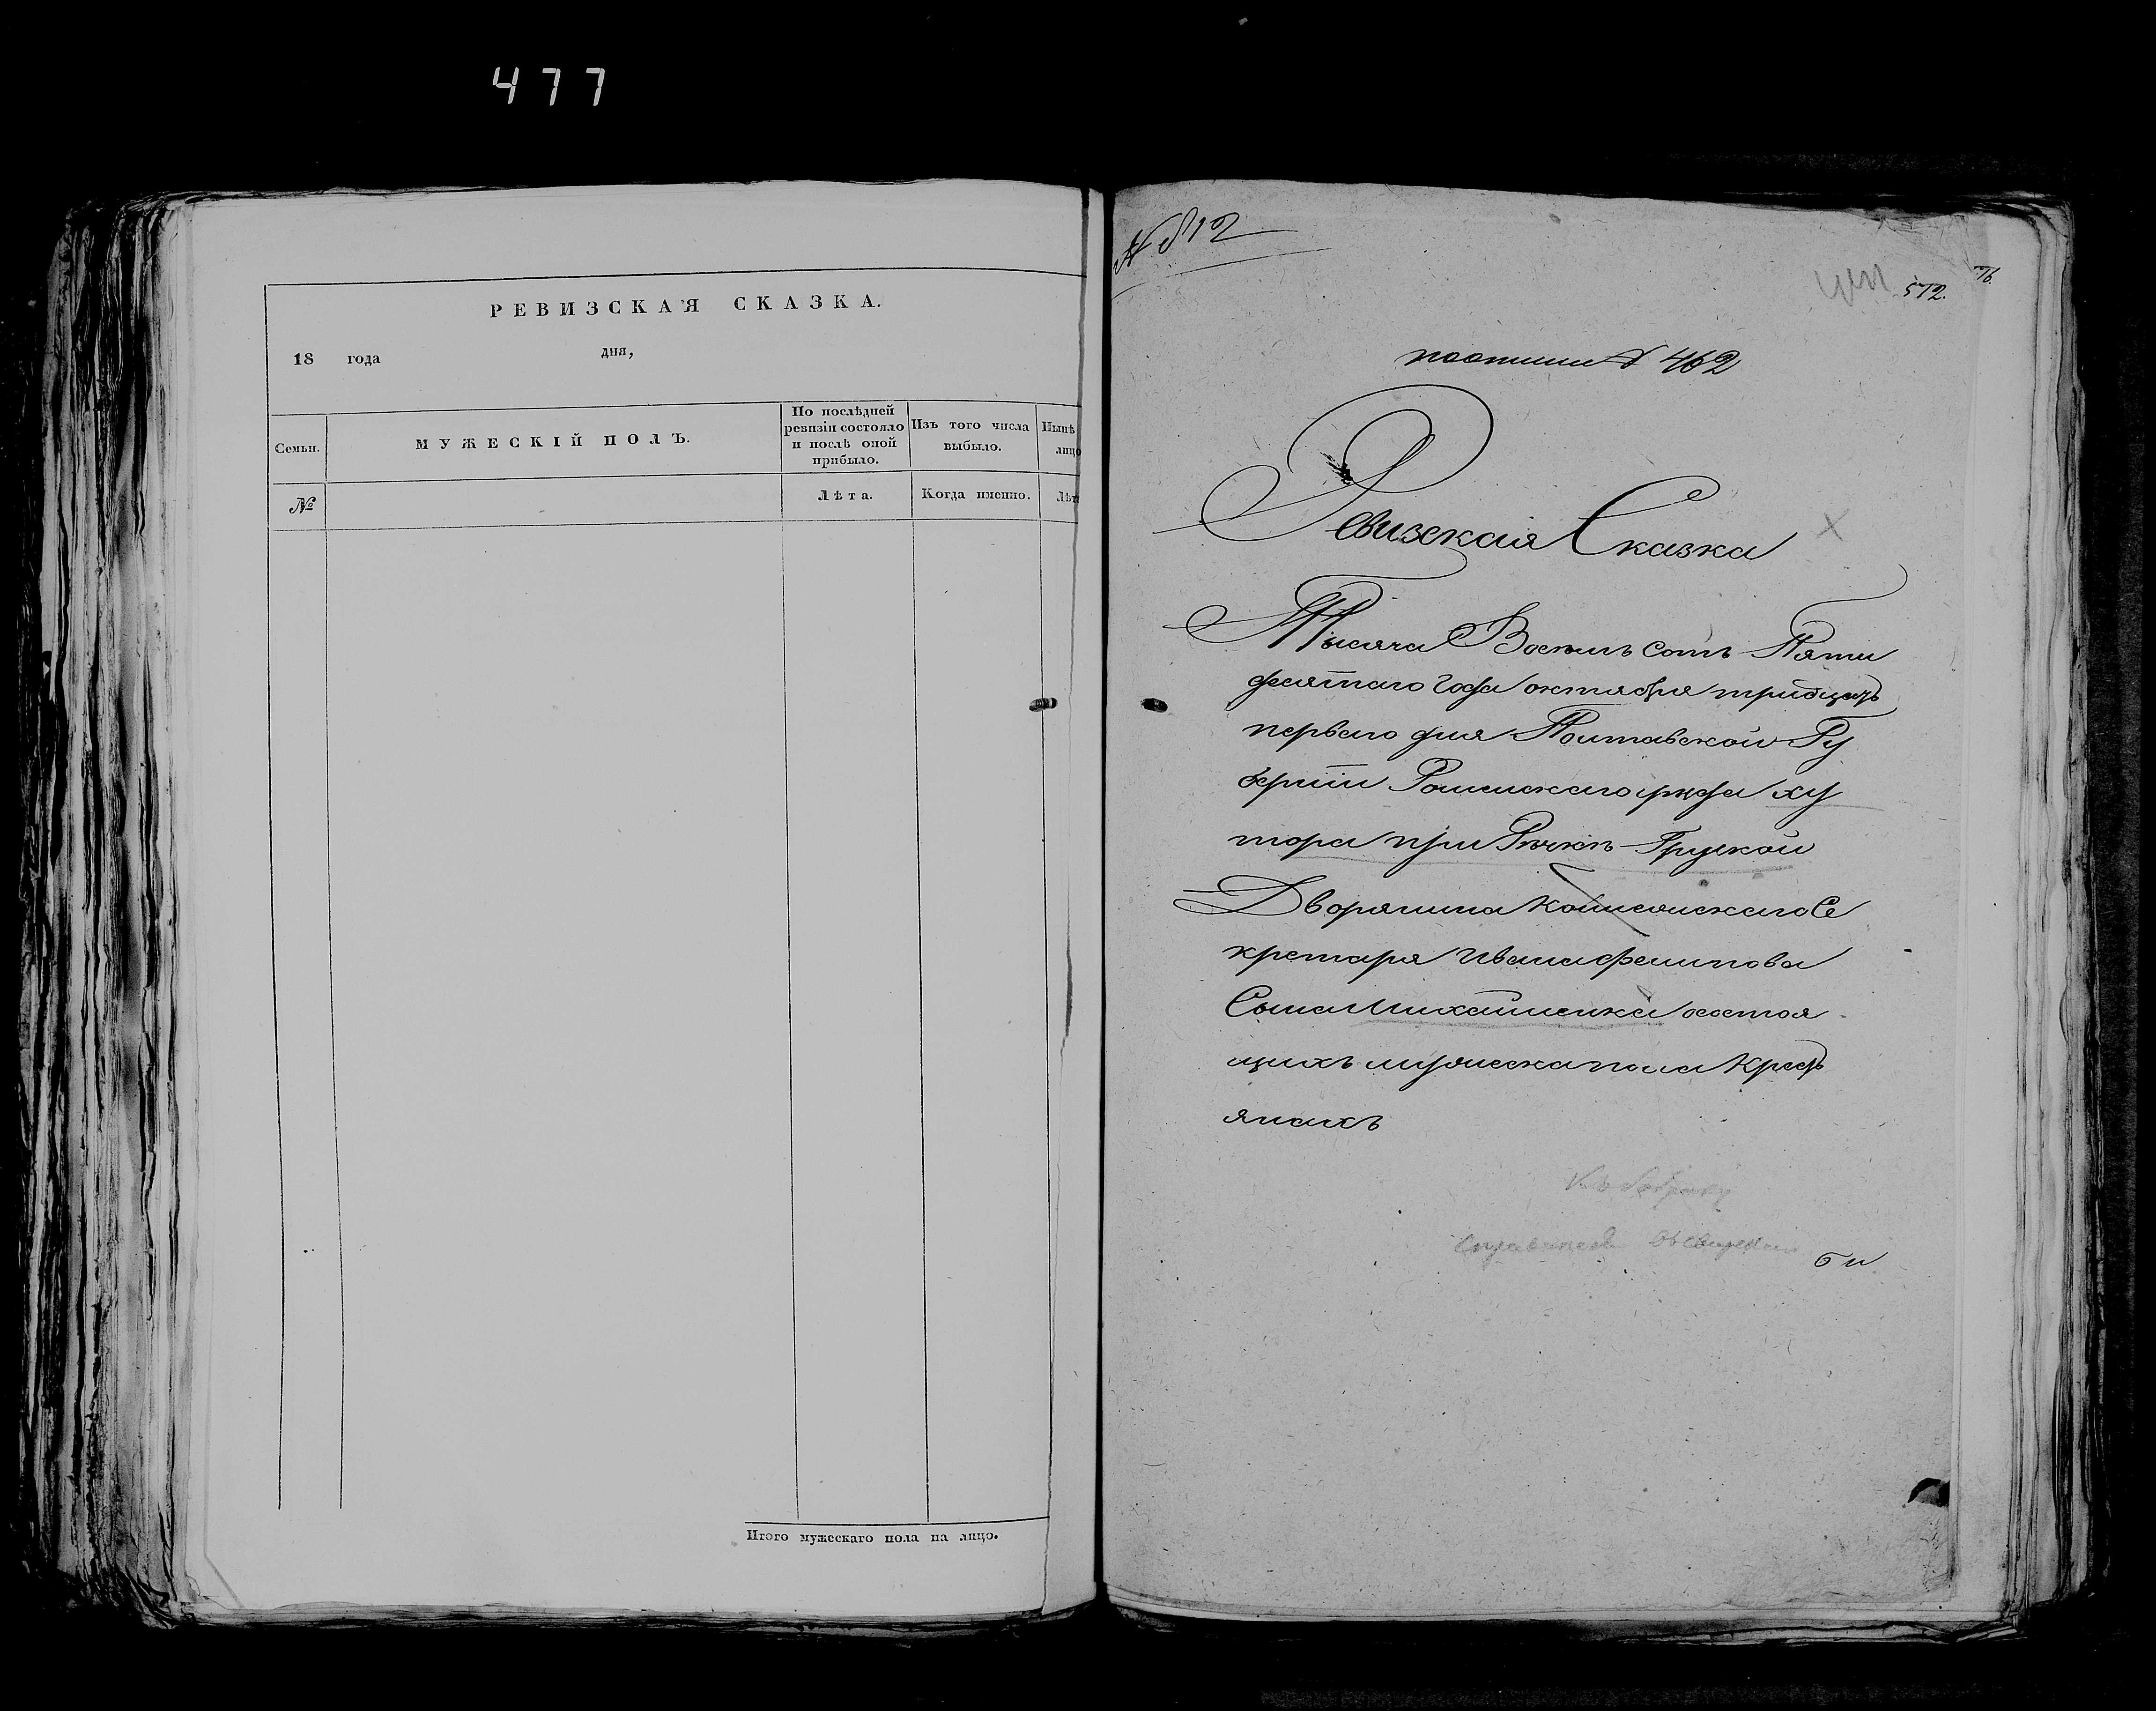 477
РЕВИЗСКАЯ СКАЗКА.
18 года дня,
Семьи.
МУЖЕСКІЙ ПОЛЪ.
По послѣдней
ревизіи состояло
и послѣ оной
прибыло.
Изъ того числа
выбыло.
Нынѣ
лицо
№
Лѣта.
Когда именно.
Лѣт
Итого мужескаго пола на лицо.
№ 812
572.
76.
№ 462
Ревизская Сказка
Тысяча Восемь сотъ Пяти
десятаго года октября тридцать
первого дня Полтавской Гу
берніи Роменскаго уезда ху
тора при Рѣчкѣ Груской
Дворянина Колежскаго Се
кретаря Ивана Филипова
Сына Михайленка состоя
щихъ мужеска пола Крестъ
янахъ